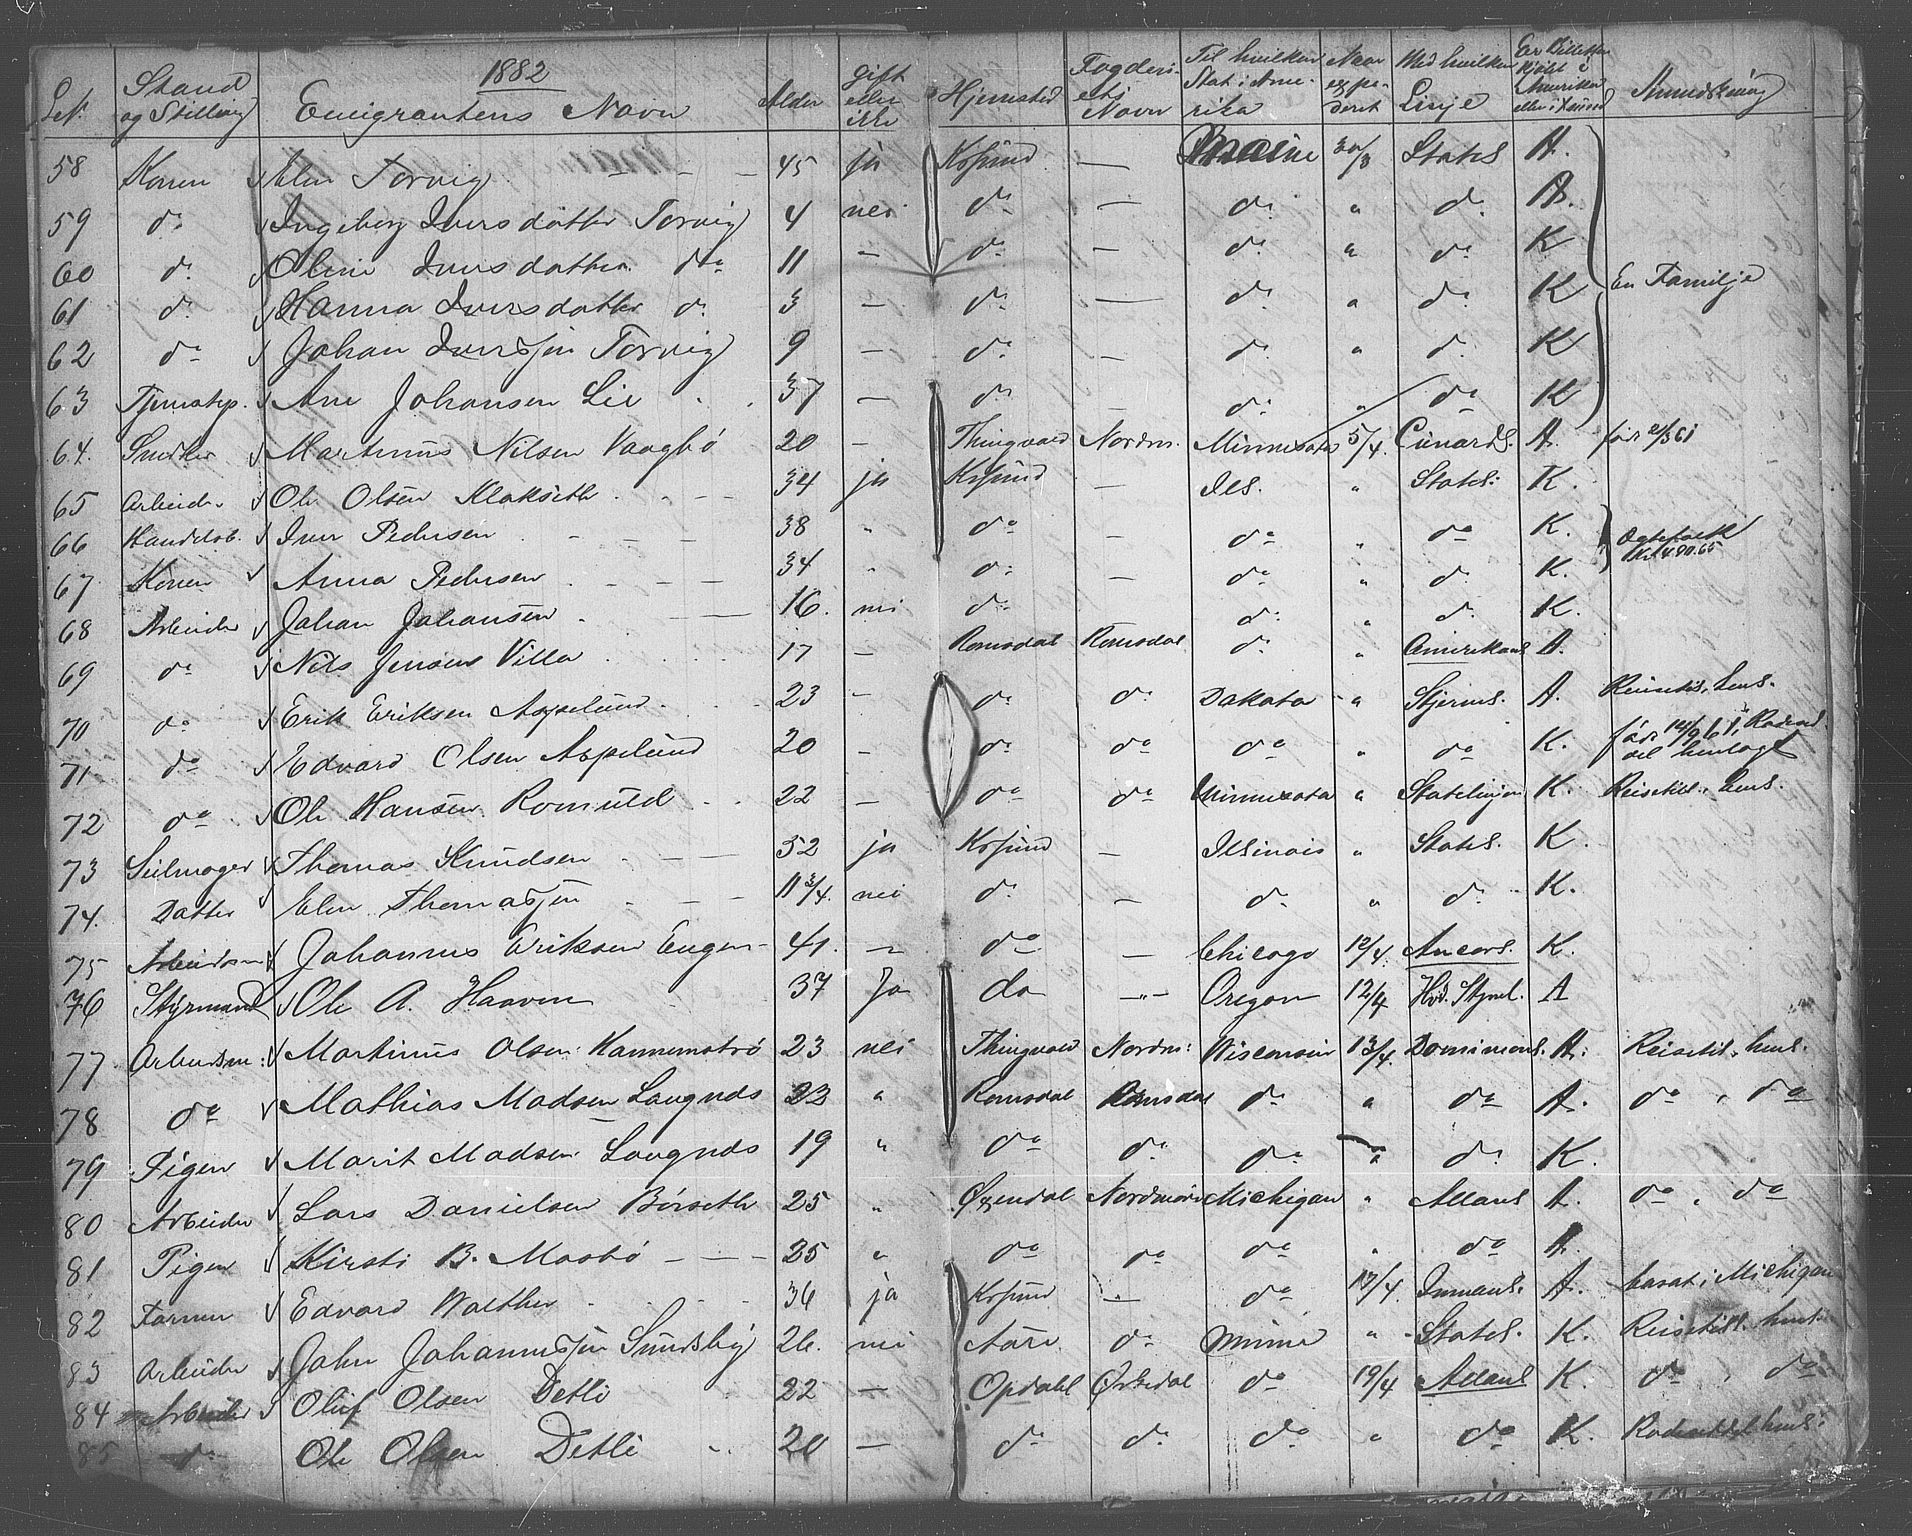 1882
Lnr. Stand og Stilling Emigrantens Navn Alder gift eller ikke Hjemsted Fogderi-ets Navn Til hvilken Stat i Ame-rika Naar expe-deret Med hvilken Linje Er Billetten kjøbt i Amerika eller i Xsund Anmærkning
58 Konen Elen Torvig - - - 45 ja Krsund — Maine 30/3 Statsl A.
59 do Ingeborg Iversdatter Torvig 4 nei do — do " do A.
60 do Oline Iversdatter do 11 — do — do " do K En Familje
61 do Hanna Iversdatter do 3 — do — do " do K
62 do Johan Iversøn Torvig 9 — do — do " do K
63 Tjenestep. Ane Johansen Lie 37 — do — do " do K
64. Snedker Martinus Nilsen Vaagbø 20 — Thingvold Nordm. Minnesota 5/4 Cunardl. A. født
65 Arbeider Ole Olsen Klakseth 34 ja Krsund — Ills. " Statsl: K.
66 Handelsb. Iver Pedersen - - - 38 " do — do " do K. Ægtefolk
67. Konen Anna Pedersen - - - 34 " do — do " do K. Kr 490.65
68 Arbeider Johan Johansen 16. nei do do " do K.
69 do Nils Jensen Villa 17 — Romsdal Romsdal do " Amerikansl A.
70 do Erik Eriksen Aspelund 23 — do do Dakota " Stjernel. A. Reisetil. hens.
71 do Edvard Olsen Aspelund 20 — do do do " do K. født Rodesed-del henlagt
72 do Ole Hansen Romuld 22 — do do Minnesota " Statslinjen K. Reisetil. hens.
73 Seilmager Thomas Knudsen - - 52 ja Krsund — Illinois " Statsl. K.
74. Datter Elen Thomasøn - - - 11 3/4. nei do — do " do K.
75 Arbeidsm Johannes Eriksen Engen 41. — do — Chicago 12/4. Ancorl. K.
76 Styrmand Ole A. Haaven 37 Ja do —"— Oregon 12/4 Hvd. Stjnel. A
77 Arbeidsm: Martinus Olsen Hannemstrø 23 nei Thingvold Nordm: Wisconsin 13/4. Dominionl. A. Reisetil. hens.
78 do Mathias Madsen Langnæs 22 " Romsdal Romsdal do " do A. do, do
79 Pigen Marit Madsen Langnæs 19 " do do do " do K.
80 Arbeider Lars Danielsen Børseth 25 " Øxendal Nordmøre Michigan " Allanl A. do, do
81 Pigen Kirsti B. Mosbø - - - 25 " do do do " do A.
82 Farmer Edvard Walther 36 ja Krsund — do 17/4. Inmanl. A. bosat i Michigan
83 Arbeider John Johannesøn Sundsby 26. nei Aure do Minne " Statsl. K. Reisetil. hens
84 Arbeider Oluf Olsen Detli 22 — Opdahl Ørkedal do 19/4 Allanl K. do, do
85 do Ole Olsen Detli 20 — do do do " do K. Rodeseddel hens: